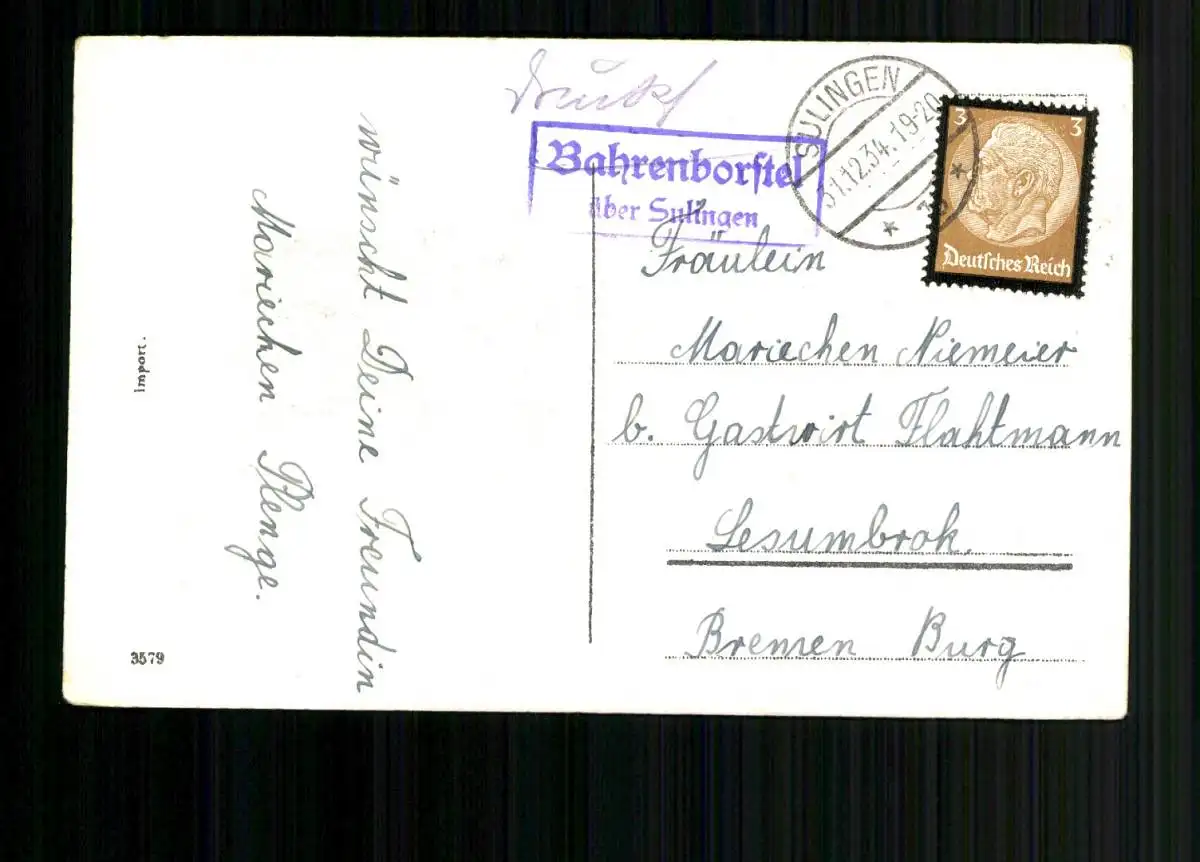 wünscht Deine Freundin
Mariechen Plenge.
Import.
3579
Bahrenborstel
über Sulingen
SULINGEN
31.12.34.19-20
3 3
Deutsches Reich
Fräulein
Mariechen Niemeier
b. Gastwirt Flahtmann
Lesumbrok.
Bremen Burg